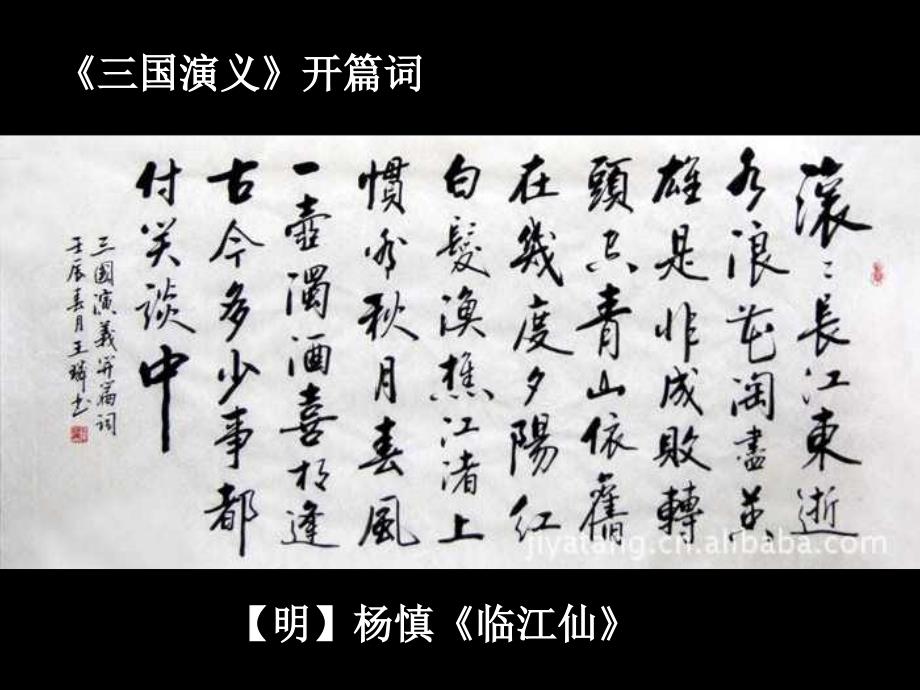 《三国演义》开篇词
滾〻長江東逝
水浪花淘盡英
雄是非成敗轉
頭空青山依舊
在幾度夕陽紅
白髮漁樵江渚上
慣看秋月春風
一壺濁酒喜相逢
古今多少事都
付笑談中
三國演義开篇词
壬辰春月王书
jiyatang.cn.alibaba.com
【明】杨慎《临江仙》